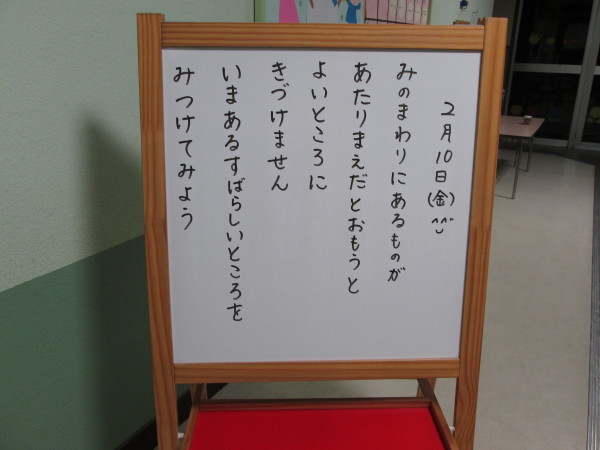 2月10日(金)^^
みのまわりにあるものが
あたりまえだとおもうと
よいところに
きづけません
いまあるすばらしいところを
みつけてみよう